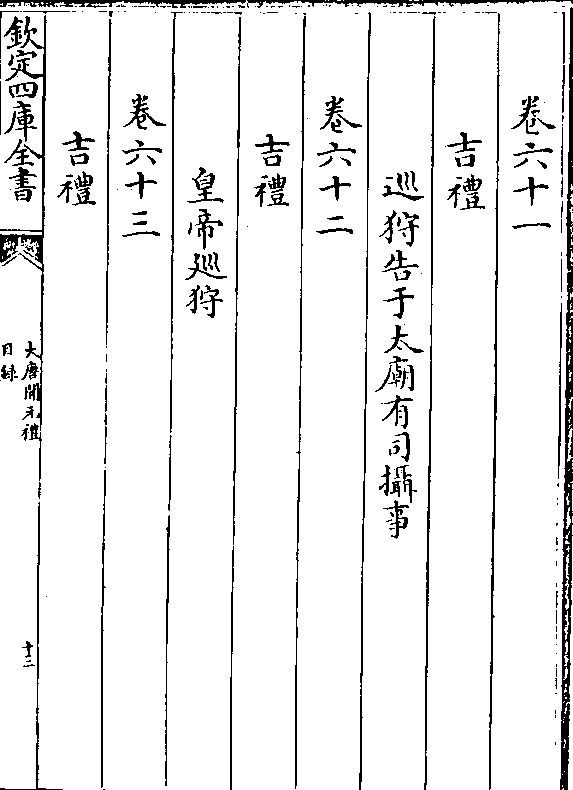 卷六十一
吉禮
巡狩告于太廟有司攝事
卷六十二
吉禮
皇帝廵狩
卷六十三
吉禮
欽定四庫全書
大唐開元禮
目錄
十二